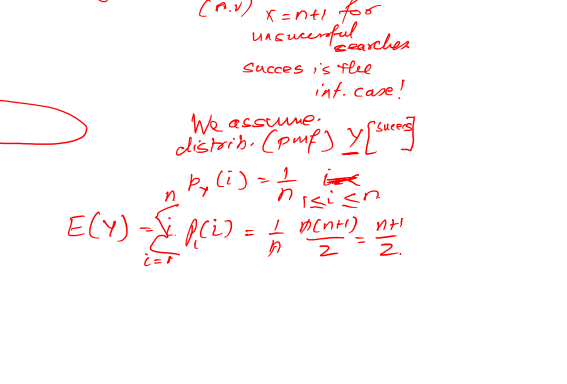 (r.v) x = n+1 for
unsucessful
searches
succes is the
int. case!
We assume.
distrib. (pmf) Y [success]
p_Y(i) = 1/n 1 ≤ i ≤ n
E(Y) = ∑_{i=1}^{n} i p_i(i) = 1/n n(n+1)/2 = n+1/2.